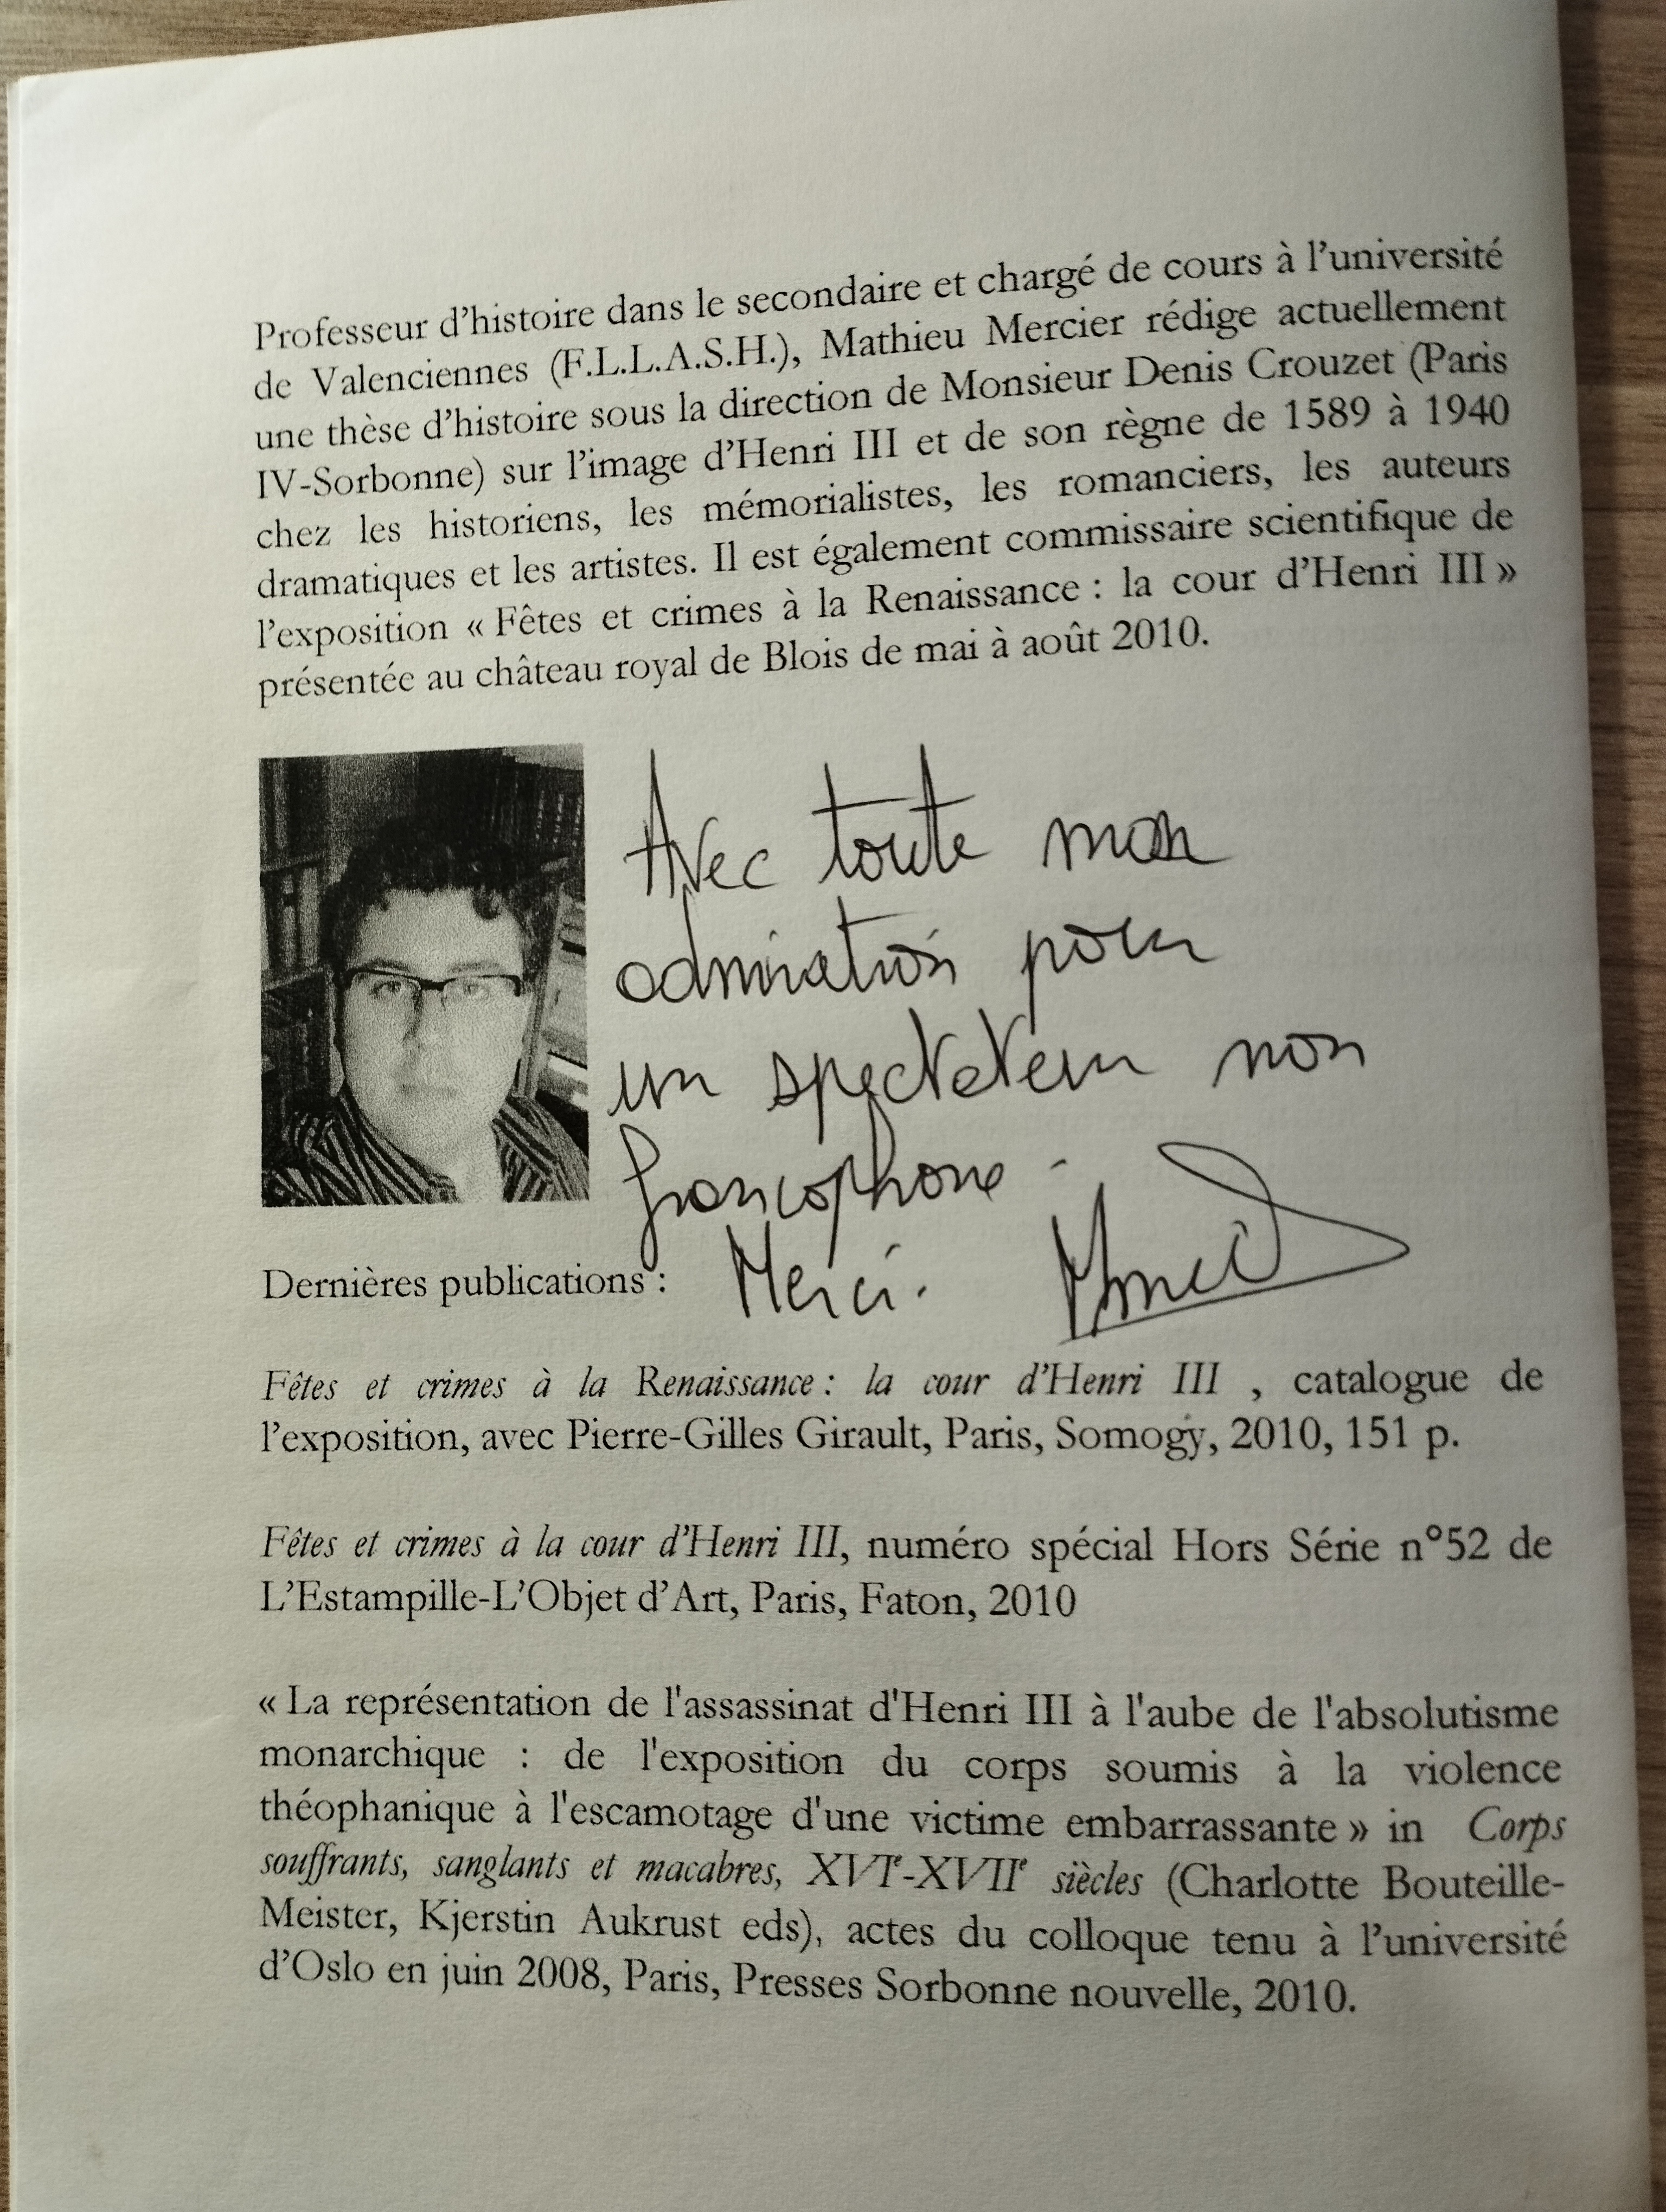 Professeur d'histoire dans le secondaire et chargé de cours à l'université
de Valenciennes (F.L.L.A.S.H.), Mathieu Mercier rédige actuellement
une thèse d'histoire sous la direction de Monsieur Denis Crouzet (Paris
IV-Sorbonne) sur l'image d'Henri III et de son règne de 1589 à 1940
chez les historiens, les mémorialistes, les romanciers, les auteurs
dramatiques et les artistes. Il est également commissaire scientifique de
l'exposition « Fêtes et crimes à la Renaissance : la cour d'Henri III »
présentée au château royal de Blois de mai à août 2010.
Avec toute mon
admiration pour
un spectateur non
francophone -
Merci.
Dernières publications :
Fêtes et crimes à la Renaissance : la cour d'Henri III , catalogue de
l'exposition, avec Pierre-Gilles Girault, Paris, Somogy, 2010, 151 p.
Fêtes et crimes à la cour d'Henri III, numéro spécial Hors Série n°52 de
L'Estampille-L'Objet d'Art, Paris, Faton, 2010
« La représentation de l'assassinat d'Henri III à l'aube de l'absolutisme
monarchique : de l'exposition du corps soumis à la violence
théophanique à l'escamotage d'une victime embarrassante » in Corps
souffrants, sanglants et macabres, XVIe-XVIIe siècles (Charlotte Bouteille-
Meister, Kjerstin Aukrust eds), actes du colloque tenu à l'université
d'Oslo en juin 2008, Paris, Presses Sorbonne nouvelle, 2010.